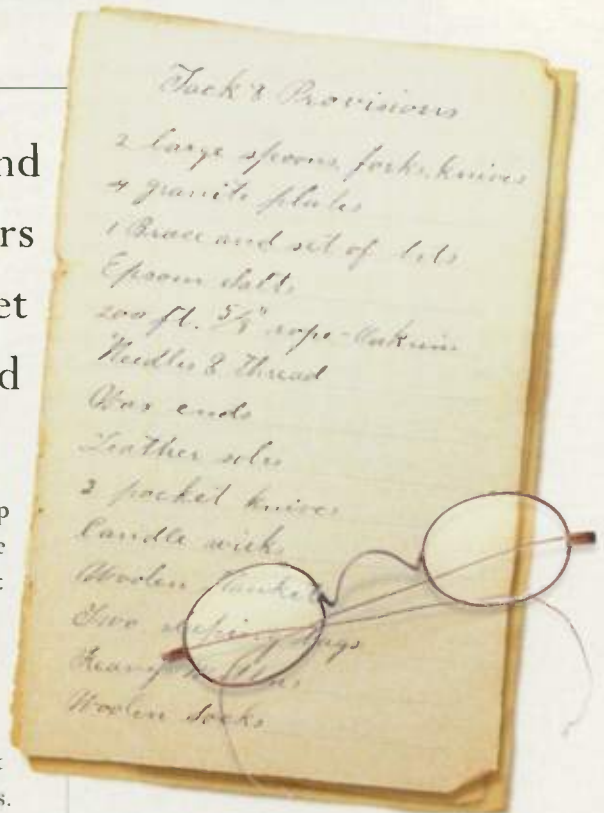 nd
rs
et
d
p
e
t
t
s.
Tack & Provisions
2 large spoons, forks, knives
4 granite plates
1 Brace and set of bits
Epsom Salts
200 ft. 5/8" rope - Oakum
Needles & Thread
Wax ends
Leather soles
2 pocket knives
Candle wicks
Woolen Blankets
Two sleeping bags
Heavy Mittens
Woolen Socks